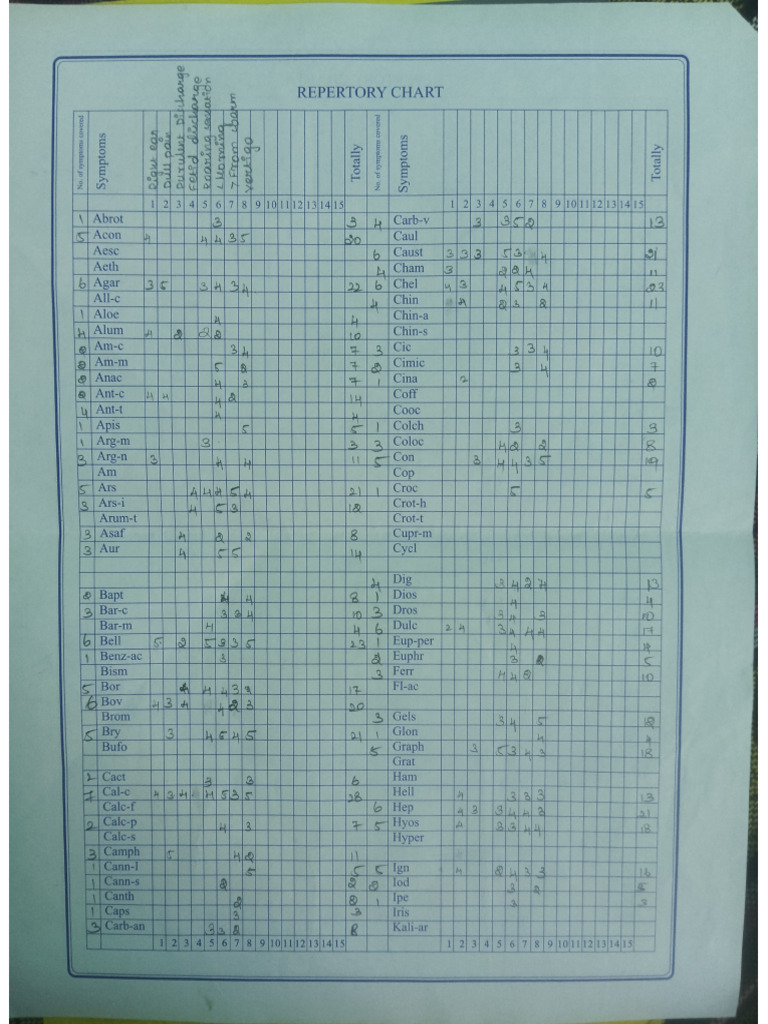 REPERTORY CHART
No. of symptoms covered Symptoms Right ear Dull pain Purulent Discharge Fetid discharge Roaring sensation < Morning > From warm vertigo Totally No. of symptoms covered Symptoms Totally
1 2 3 4 5 6 7 8 9 10 11 12 13 14 15 1 2 3 4 5 6 7 8 9 10 11 12 13 14 15
1 Abrot 3 3 4 Carb-v 3 3 5 2 13
5 Acon 4 4 4 3 5 20 Caul
Aesc 6 Caust 3 3 3 5 3 4 21
Aeth 4 Cham 3 2 2 4 11
6 Agar 3 5 3 4 3 4 22 6 Chel 4 3 4 5 3 4 23
All-c 4 Chin 4 2 3 2 11
1 Aloe 4 4 Chin-a
4 Alum 4 2 2 2 10 Chin-s
2 Am-c 3 4 7 3 Cic 3 3 4 10
2 Am-m 5 2 7 2 Cimic 3 4 7
2 Anac 4 3 7 1 Cina 2 2
2 Ant-c 4 4 4 2 14 Coff
4 Ant-t 4 4 Cooc
1 Apis 5 5 1 Colch 3 3
1 Arg-m 3 3 3 Coloc 4 2 2 8
3 Arg-n 3 4 4 11 5 Con 3 4 4 3 5 19
Am Cop
5 Ars 4 4 4 5 4 21 1 Croc 5 5
3 Ars-i 4 5 3 12 Crot-h
Arum-t Crot-t
3 Asaf 4 2 2 8 Cupr-m
3 Aur 4 5 5 14 Cycl
4 Dig 3 4 2 4 13
2 Bapt 4 4 8 1 Dios 4 4
3 Bar-c 3 3 4 10 3 Dros 3 4 3 10
Bar-m 4 4 6 Dulc 2 4 3 4 4 4 17
6 Bell 5 2 5 2 3 5 23 1 Eup-per 4 4
1 Benz-ac 3 2 Euphr 3 2 5
Bism 3 Ferr 4 4 2 10
5 Bor 4 4 4 3 2 17 Fl-ac
6 Bov 4 3 4 4 2 3 20
Brom 3 Gels 3 4 5 12
5 Bry 3 4 5 4 5 21 1 Glon 4 4
Bufo 5 Graph 3 5 3 4 3 18
Grat
2 Cact 3 3 6 Ham
7 Cal-c 4 3 4 4 5 3 5 28 Hell 4 3 3 3 13
Calc-f 6 Hep 4 3 3 4 4 3 21
2 Calc-p 4 3 7 5 Hyos 4 3 3 4 4 18
Calc-s Hyper
3 Camph 5 4 2 11
1 Cann-I 5 5 5 Ign 4 2 4 3 3 16
1 Cann-s 2 2 2 Iod 3 2 5
1 Canth 2 2 1 Ipe 3 3
1 Caps 3 3 Iris
3 Carb-an 3 3 2 8 Kali-ar
1 2 3 4 5 6 7 8 9 10 11 12 13 14 15 1 2 3 4 5 6 7 8 9 10 11 12 13 14 15